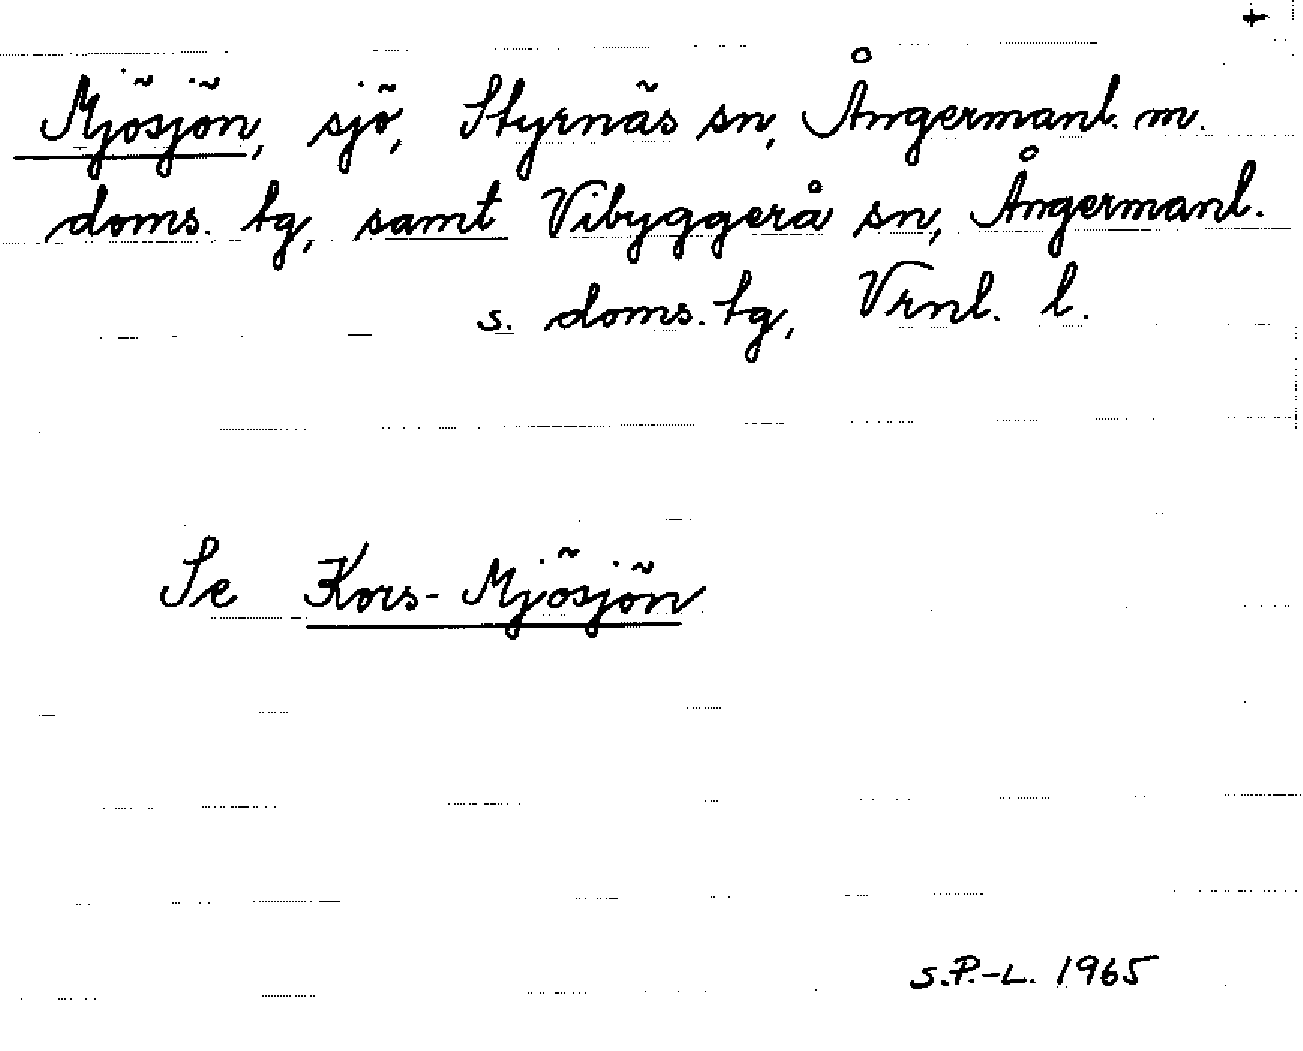 +
Mjösjön, sjö, Styrnäs sn, Ångermanl. m.
doms. tg, samt Vibyggerå sn, Ångermanl.
s. doms. tg, Vrnl. l.
Se Kors-Mjösjön
S.P.-L. 1965